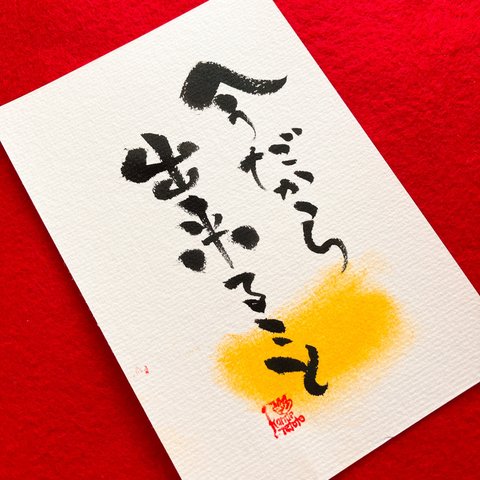 今だから
出来ること